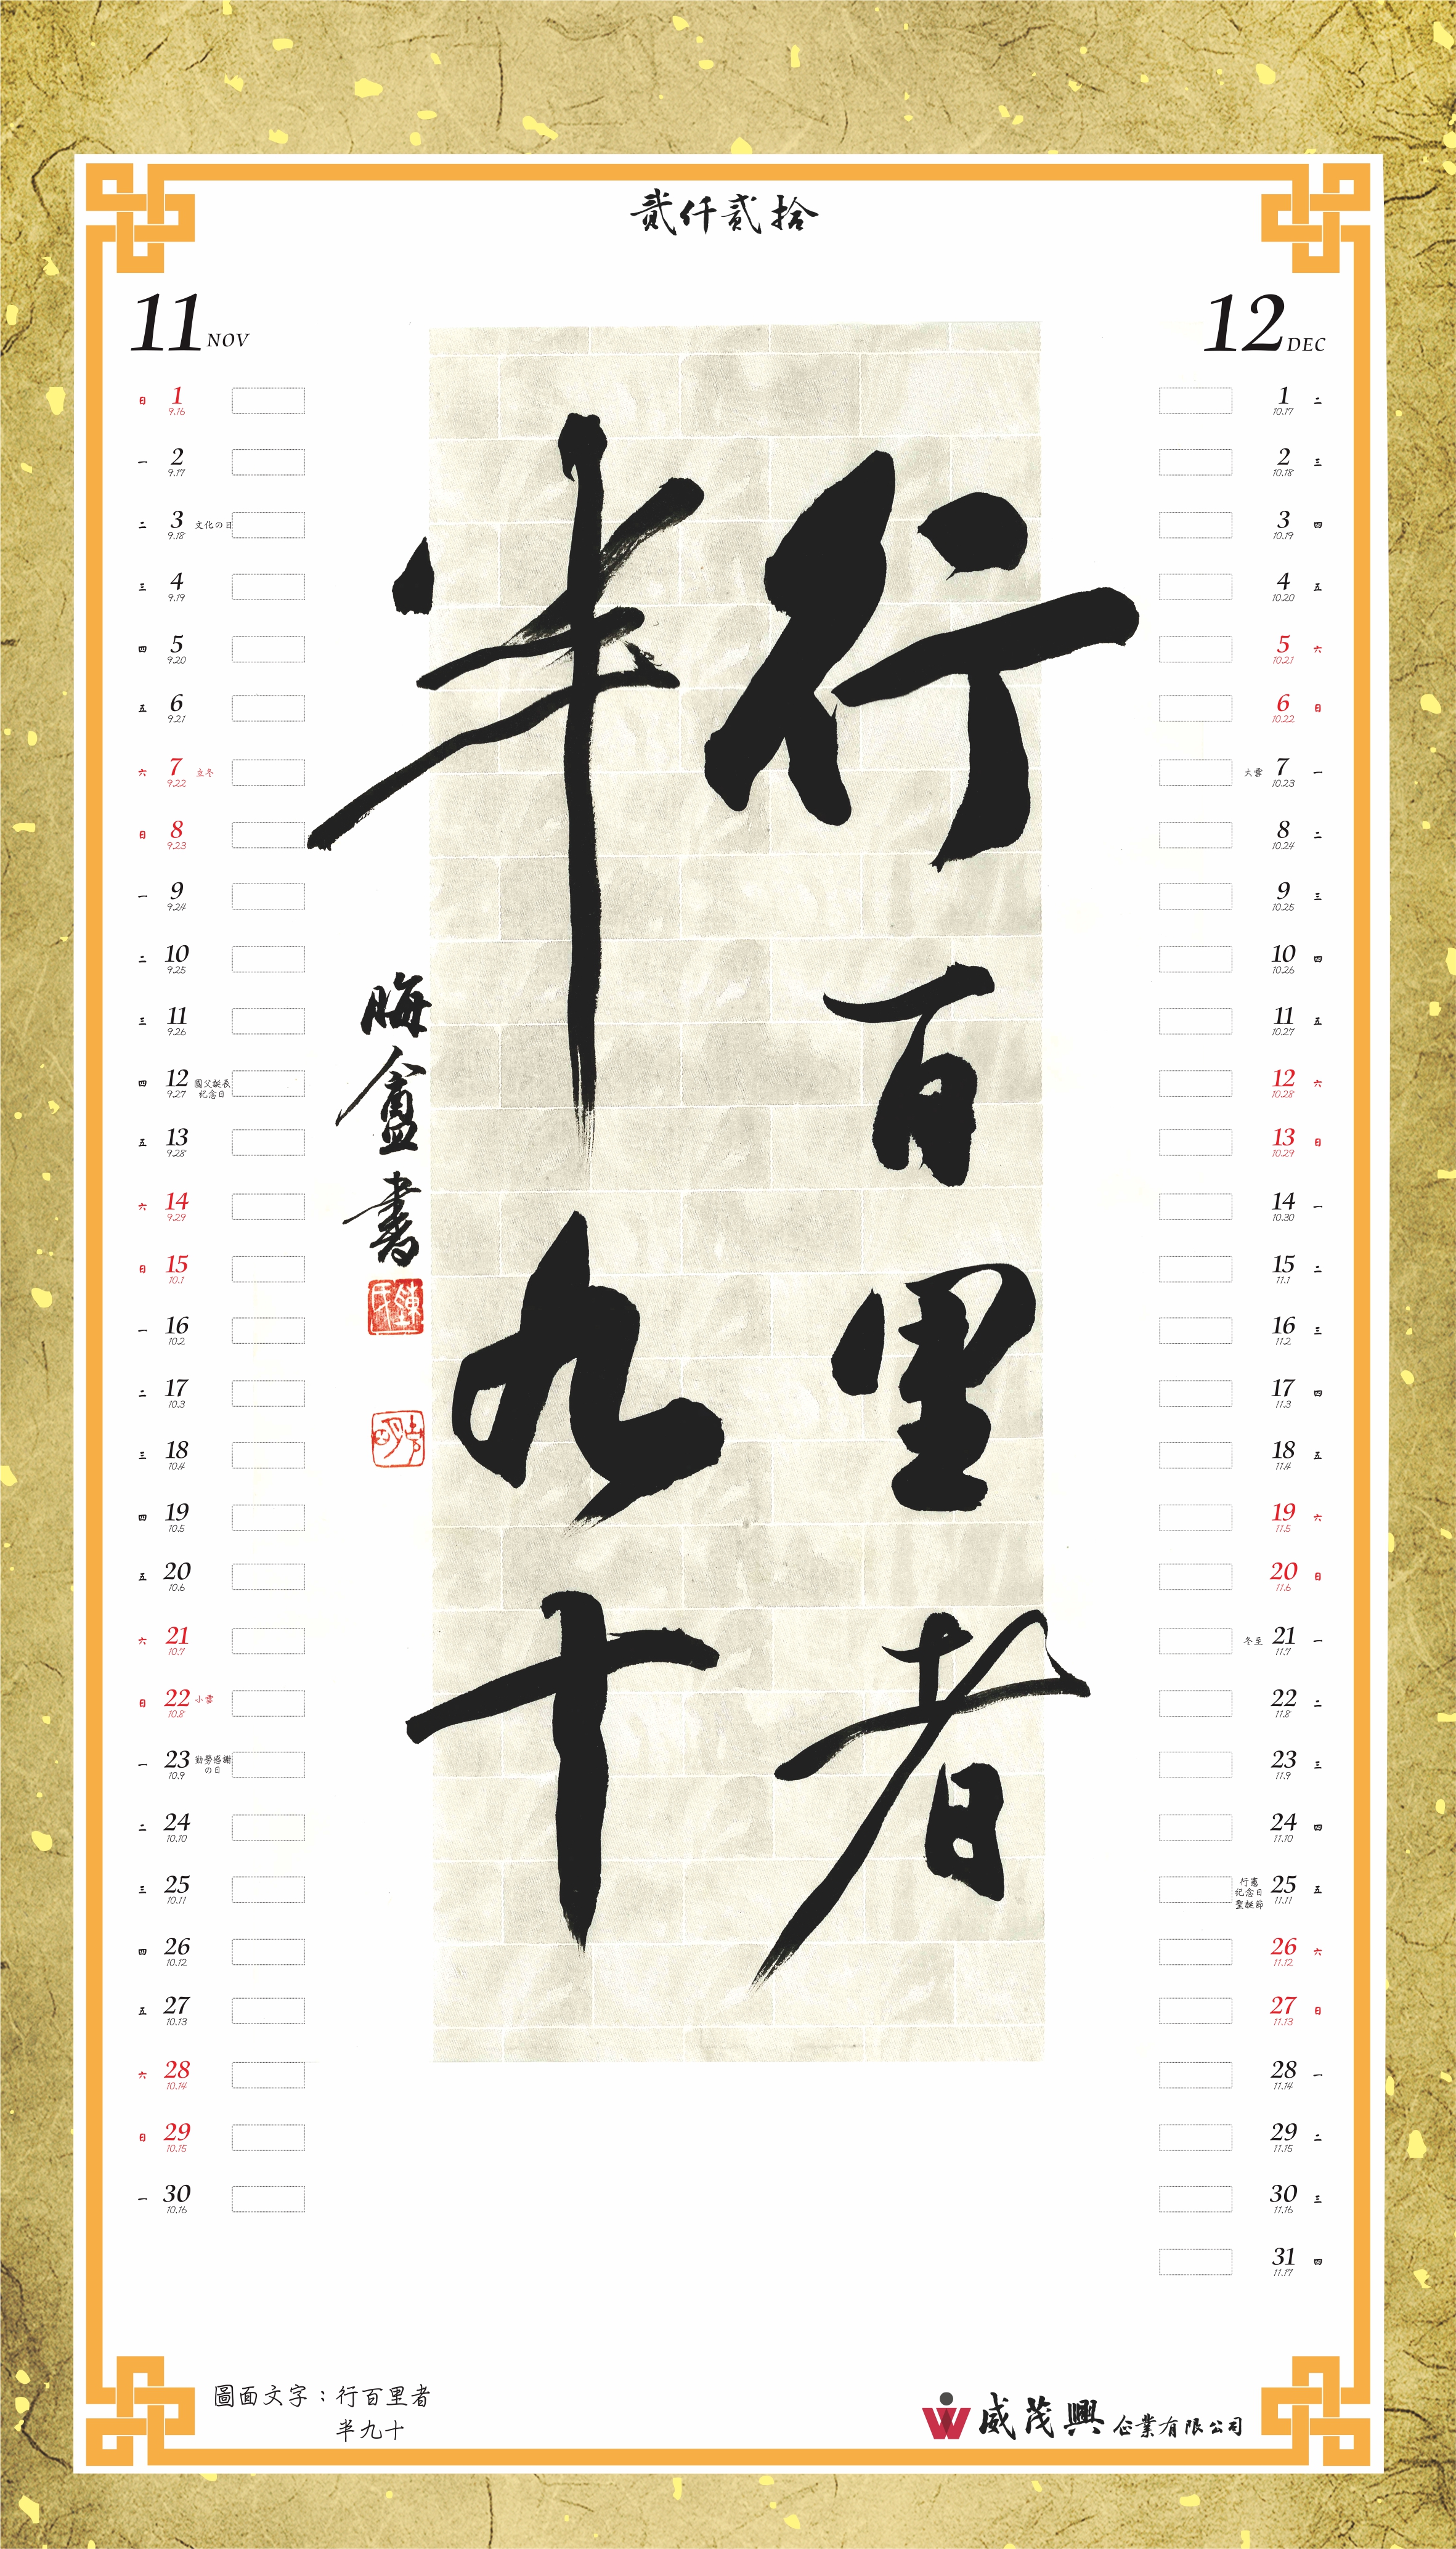 貳仟貳拾
11 NOV
日 1 9.16
一 2 9.17
二 3 9.18 文化の日
三 4 9.19
四 5 9.20
五 6 9.21
六 7 9.22 立冬
日 8 9.23
一 9 9.24
二 10 9.25
三 11 9.26
四 12 9.27 國父誕辰紀念日
五 13 9.28
六 14 9.29
日 15 10.1
一 16 10.2
二 17 10.3
三 18 10.4
四 19 10.5
五 20 10.6
六 21 10.7
日 22 10.8 小雪
一 23 10.9 勤勞感謝の日
二 24 10.10
三 25 10.11
四 26 10.12
五 27 10.13
六 28 10.14
日 29 10.15
一 30 10.16
行百里者
半九十
晦盦書
12 DEC
1 10.17 二
2 10.18 三
3 10.19 四
4 10.20 五
5 10.21 六
6 10.22 日
大雪 7 10.23 一
8 10.24 二
9 10.25 三
10 10.26 四
11 10.27 五
12 10.28 六
13 10.29 日
14 10.30 一
15 11.1 二
16 11.2 三
17 11.3 四
18 11.4 五
19 11.5 六
20 11.6 日
冬至 21 11.7 一
22 11.8 二
23 11.9 三
24 11.10 四
行憲紀念日聖誕節 25 11.11 五
26 11.12 六
27 11.13 日
28 11.14 一
29 11.15 二
30 11.16 三
31 11.17 四
圖面文字：行百里者
半九十
威茂興企業有限公司